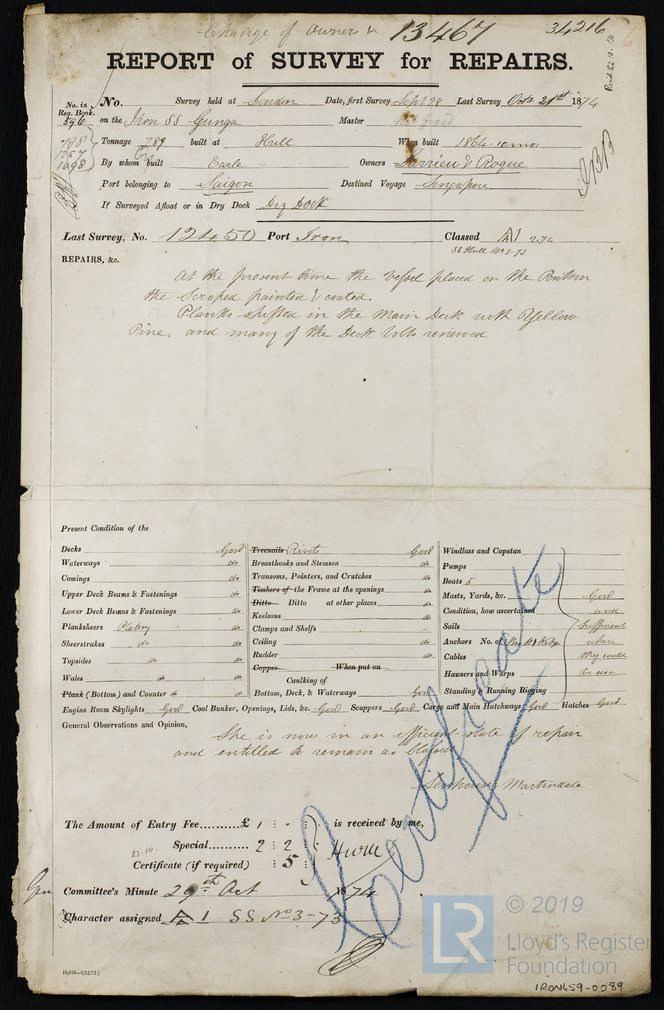 Change of Owners &
13467
34216
6
REPORT of SURVEY for REPAIRS.
No. in Reg. Book.
596
No. Survey held at London Date, first Survey Sept 28 Last Survey Octr 21st 1874
on the Iron SS Gunga Master
Tonnage 789 built at Hull When built 1864. 10 mo.
By whom built Earle Owners Larrieu & Roque
Port belonging to Saigon Destined Voyage Singapore
If Surveyed Afloat or in Dry Dock Dry Dock
Last Survey, No. 12450 Port Iron Classed A1 2.74
SS Hull No 3-73
REPAIRS, &c.
At the present time the vessel placed on the Pontoon
the scraped painted & coated.
Planks shifted in the Main Deck with Yellow
Pine, and many of the Deck bolts renewed
Present Condition of the
Decks Good
Waterways do
Comings do
Upper Deck Beams & Fastenings do
Lower Deck Beams & Fastenings do
Planksheers Plating do
Sheerstrakes do do
Topsides do do
Wales do do
Plank (Bottom) and Counter do
Treenails Rivets Good
Breasthooks and Stemson do
Transoms, Pointers, and Crutches do
Timbers of the Frame at the openings do
Ditto Ditto at other places do
Keelsons do
Clamps and Shelfs
Ceiling do
Rudder do
Copper When put on
Caulking of
Bottom, Deck, & Waterways Good
Windlass and Capstan
Pumps
Boats 5
Masts, Yards, &c. Good
Condition, how ascertained and
Sails sufficient
Anchors No. of where
Cables they could
Hawsers and Warps be seen
Standing & Running Rigging
Engine Room Skylights Good Coal Bunker, Openings, Lids, &c. Good Scuppers Good Cargo and Main Hatchways Good Hatches Good
General Observations and Opinion,
She is now in an efficient state of repair
and entitled to remain as Classed
Martindale
Certificate
The Amount of Entry Fee..........£ 1 : - : is received by me,
Special.......... 2 : 2 :
Certificate (if required) : 5 :
Committee's Minute 29th Oct 1874
Character assigned A 1 SS No 3-73
LR
© 2019
Lloyd's Register
Foundation
IRON459-0089